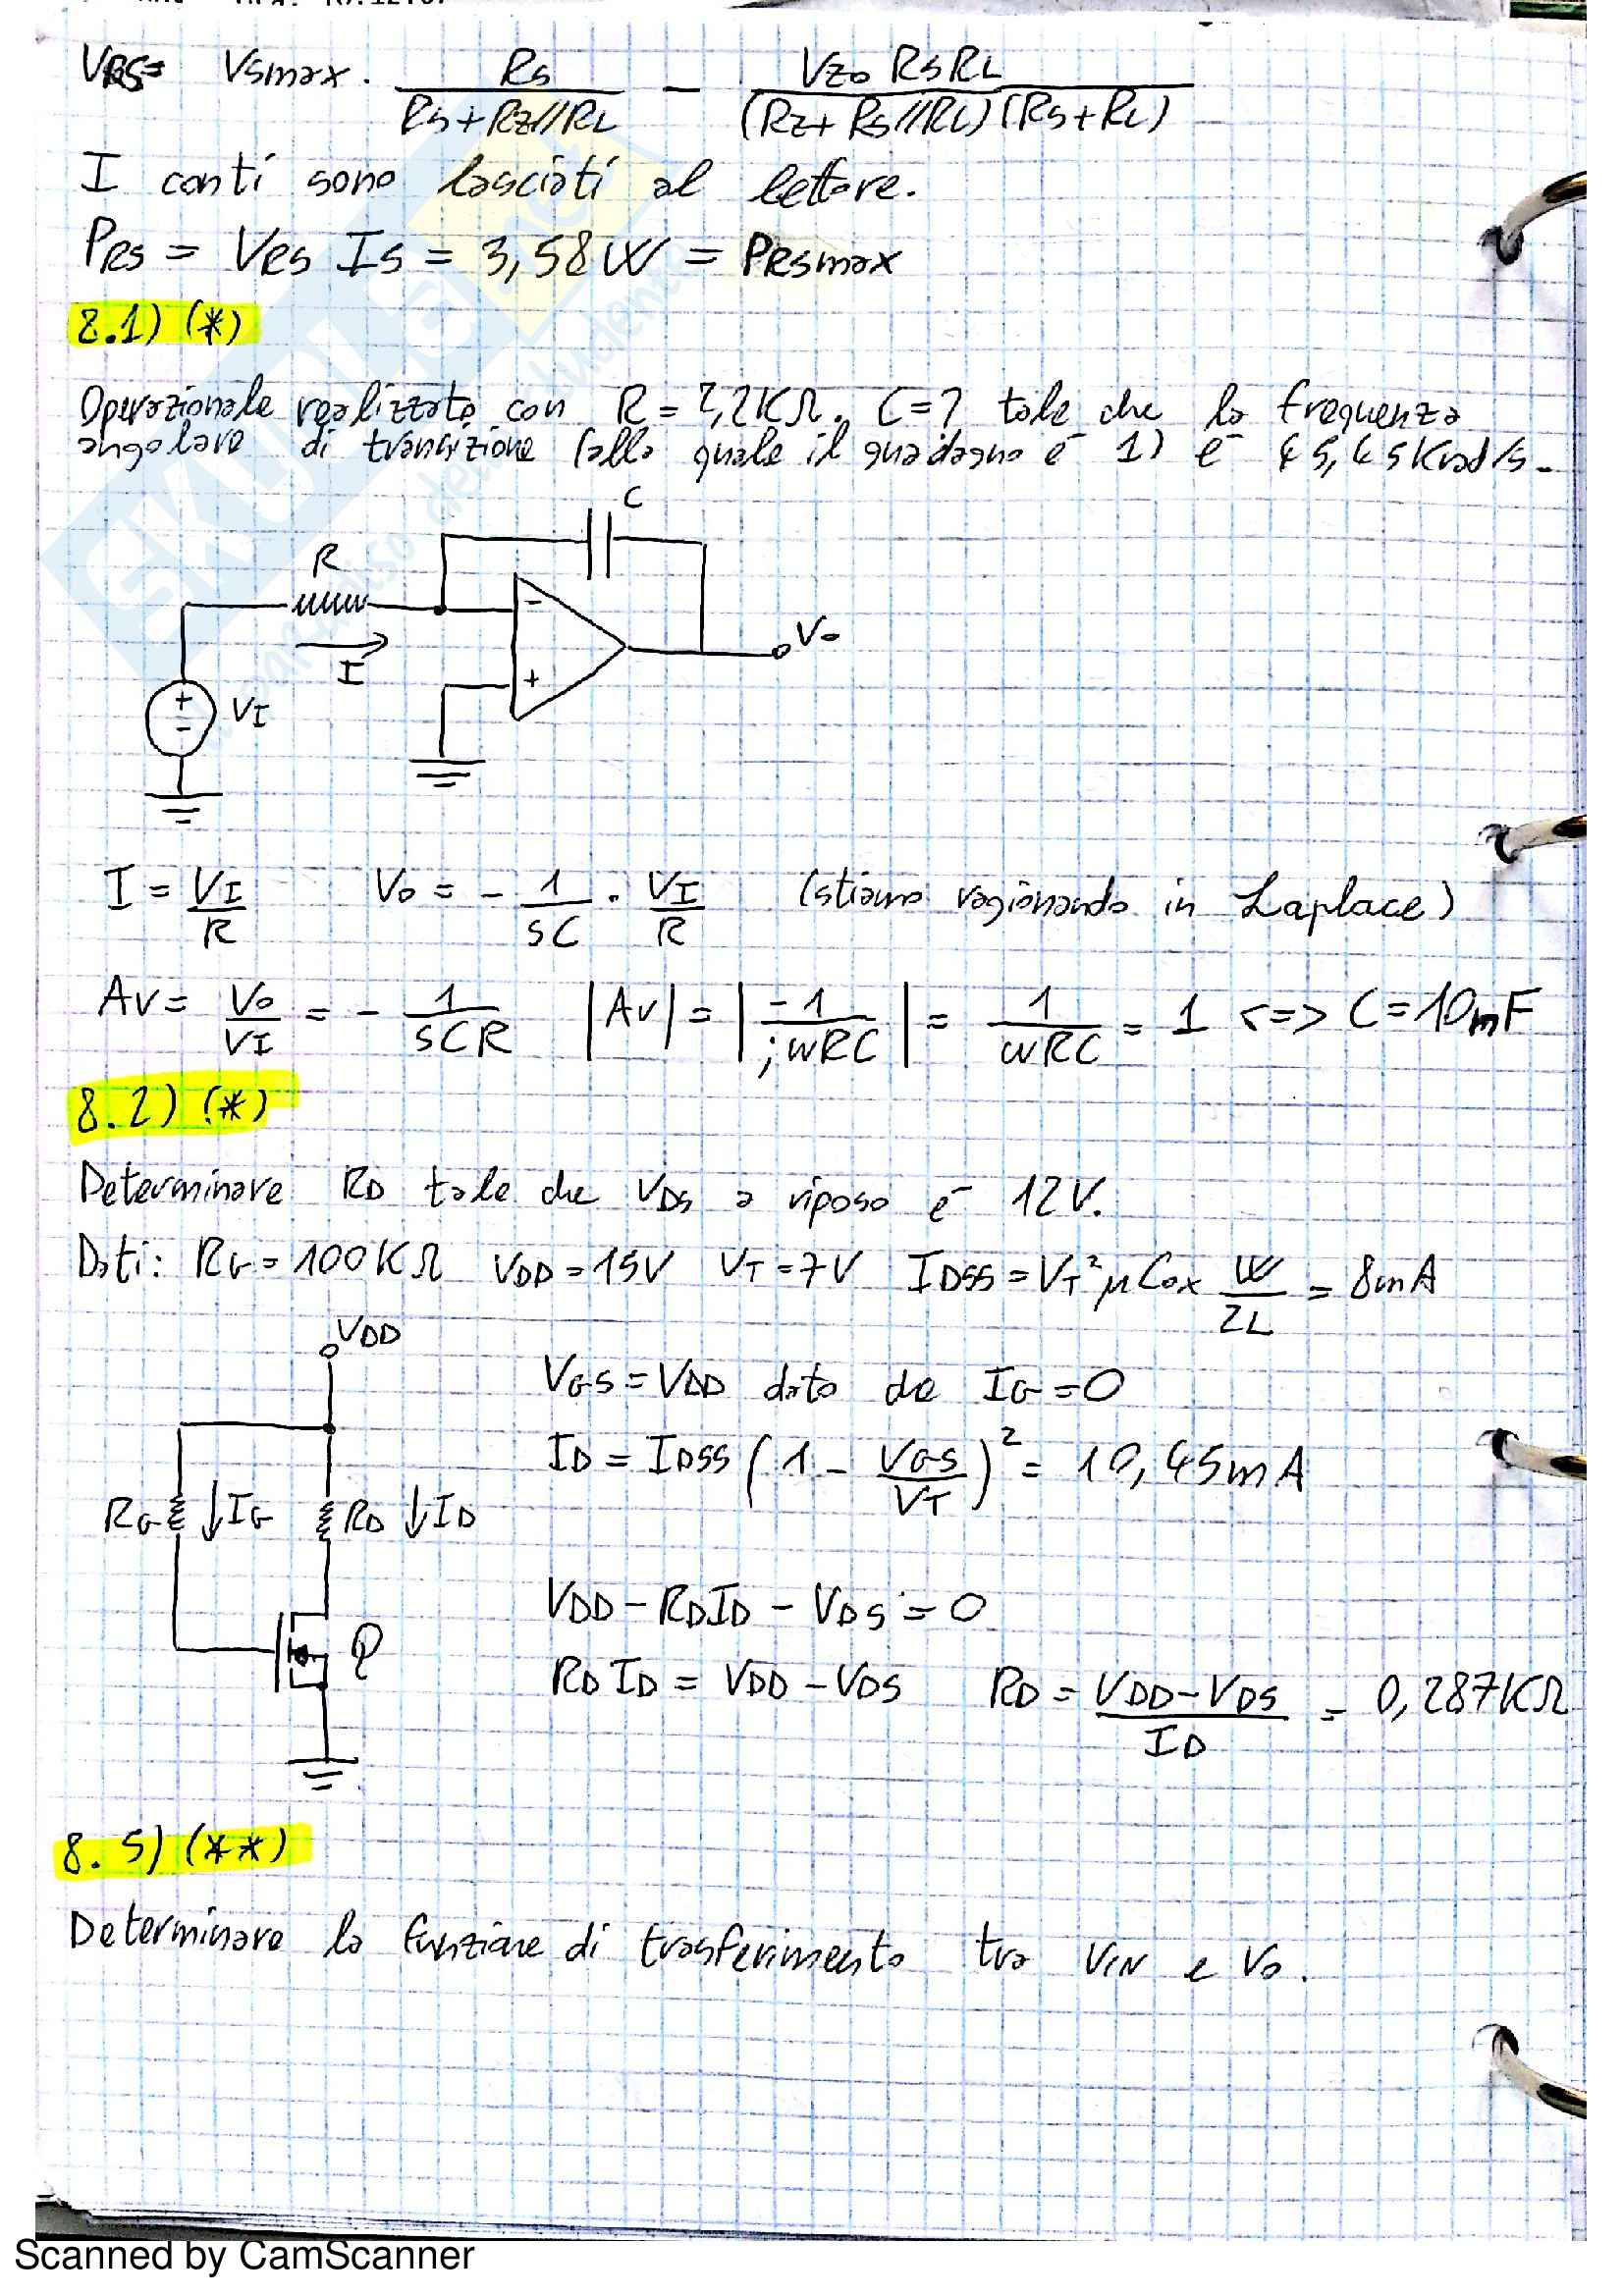 VRS = Vsmax · Rs / (Rs + Rz//RL) − Vzo Rs RL / ((Rz + Rs//RL)(Rs + RL))
I conti sono lasciati al lettore.
PRS = VRS IS = 3,58 W = PRSmax
8.1) (*)
Operazionale realizzato con R = 2,2KΩ. C = ? tale che la frequenza
angolare di transizione (alla quale il guadagno è 1) è 45,45 Krad/s.
C
R
I
VI
+
-
-
+
Vo
I = VI / R Vo = - 1 / sC · VI / R (stiamo ragionando in Laplace)
Av = Vo / VI = - 1 / sCR |Av| = | -1 / jωRC | = 1 / ωRC = 1 <=> C = 10 nF
8.2) (*)
Determinare RD tale che VDS a riposo è 12V.
Dati: RG = 100KΩ VDD = 15V VT = 7V IDSS = VT² μ Cox W / 2L = 8mA
VDD
VGS = VDD dato che IG = 0
ID = IDSS (1 - VGS / VT)² = 10,45mA
RG ↓IG RD ↓ID
VDD - RDID - VDS = 0
Q
RD ID = VDD - VDS RD = VDD - VDS / ID = 0,287KΩ
8.5) (**)
Determinare la funzione di trasferimento tra VIN e Vo.
Scanned by CamScanner